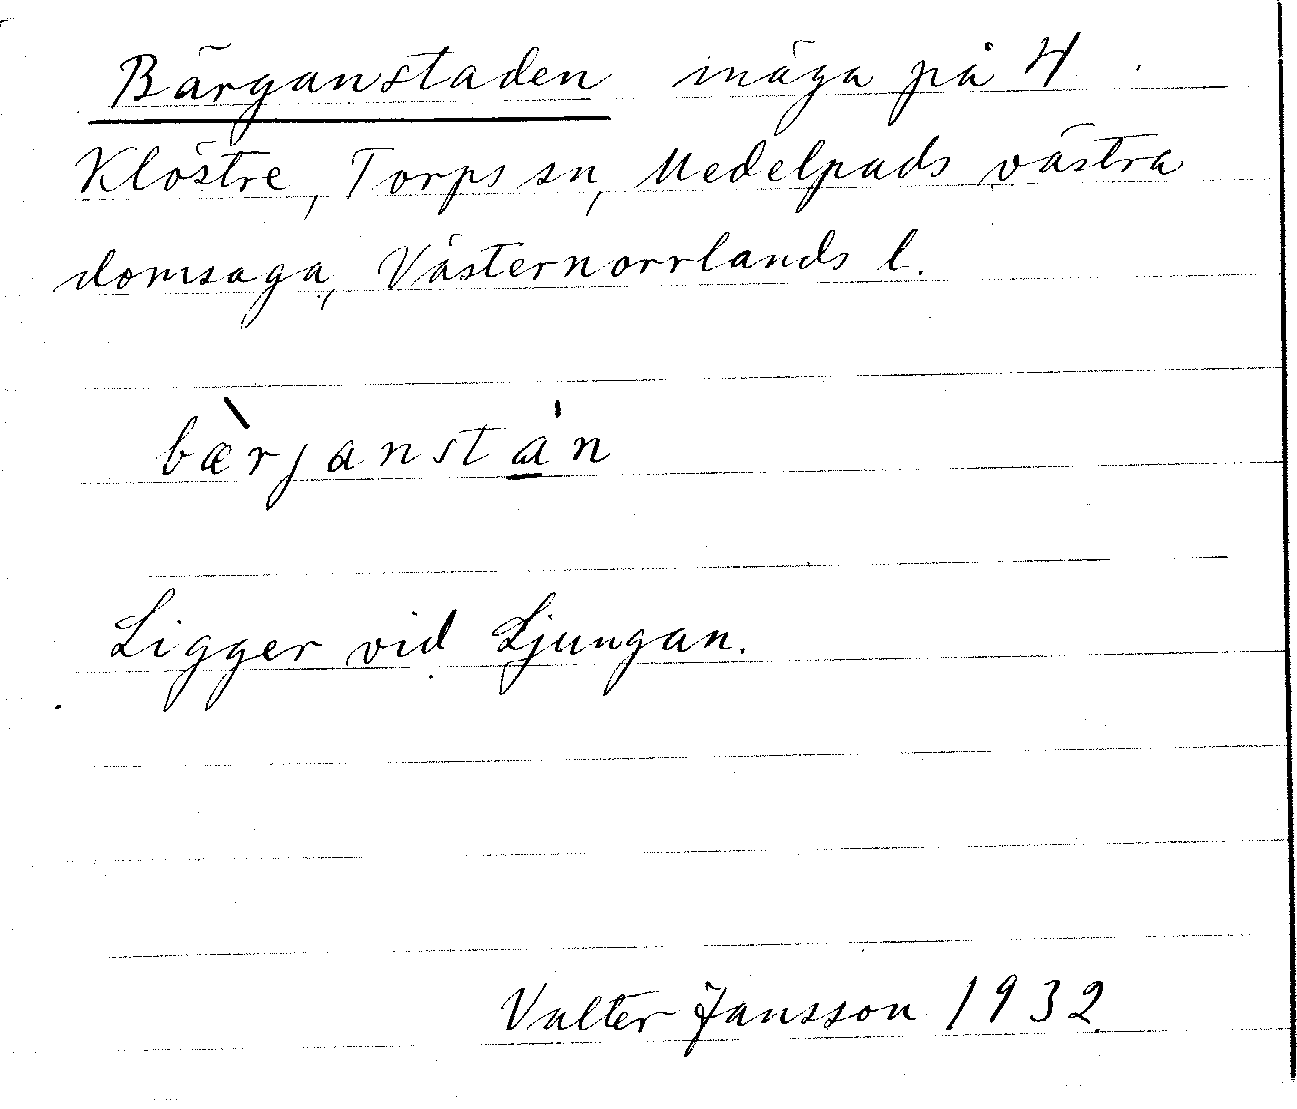 Bärganstaden inäga på 4
Klöstre, Torps sn, Medelpads västra
domsaga, Västernorrlands l.
bæ̀rjanstán
Ligger vid Ljungan.
Valter Jansson 1932